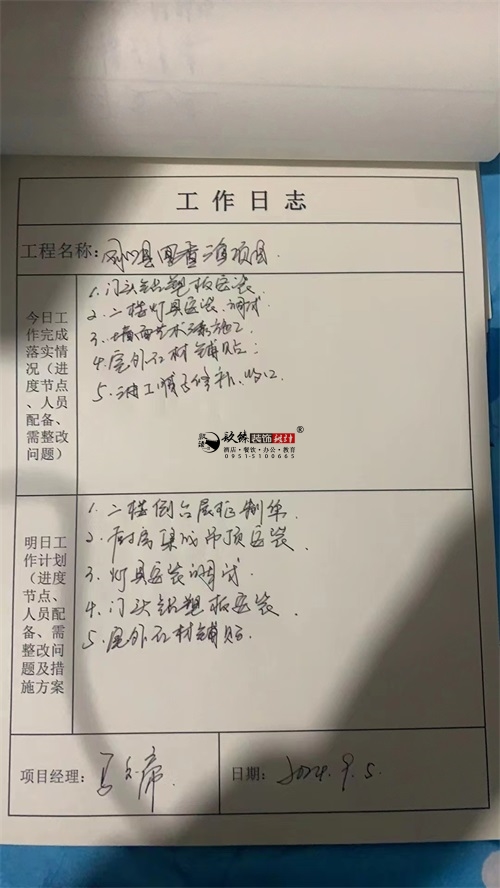 工作日志
工程名称:
项目.
今日工作完成落实情况(进度节点、人员配备、需整改问题)
1.门头铝塑板安装.
2.二楼灯具安装、调试
3.墙面艺术漆施工
4.屋外石材铺贴:
5.油工 修补、收口
玖臻装饰设计®
酒店·餐饮·办公·教育
0951-5100665
明日工作计划(进度节点、人员配备、需整改问题及措施方案
1.二楼 制单.
2.厨房集成吊顶安装.
3.灯具安装调试.
4.门头铝塑板安装.
5.屋外石材铺贴.
项目经理:
日期: 2024.9.5.